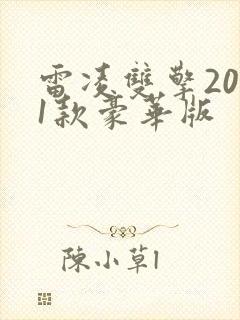 雷凌雙擎20
1款豪華版
陳小草1